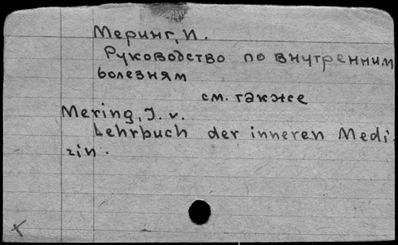 Меринг, И.
Руководство по внутренним
болезням
см. также
Mering, J. v.
Lehrbuch der inneren Medi-
zin.